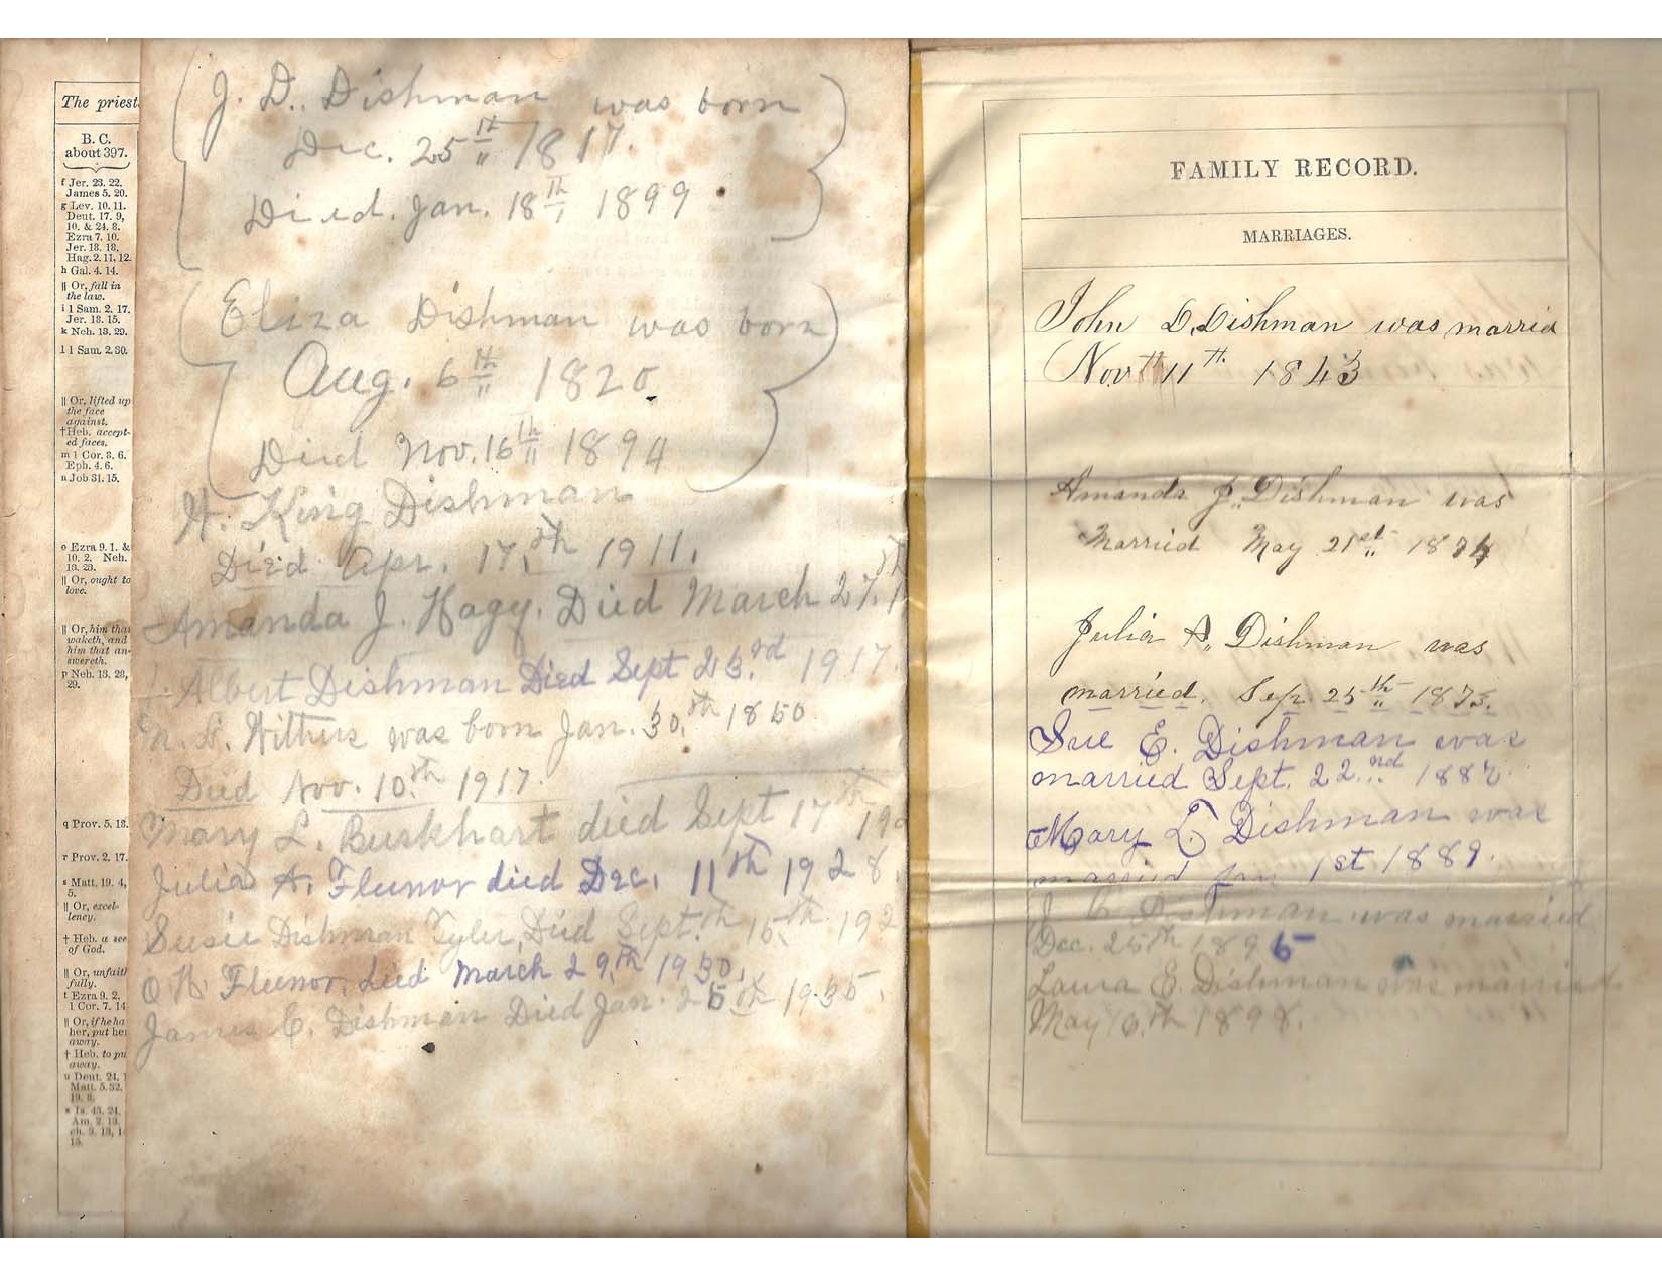 The priest
B. C.
about 397.
f Jer. 23. 22.
James 5. 20.
g Lev. 10. 11.
Deut. 17. 9,
10. & 24. 8.
Ezra 7. 10.
Jer. 18. 18.
Hag. 2. 11, 12.
h Gal. 4. 14.
|| Or, fall in
the law.
i 1 Sam. 2. 17.
Jer. 18. 15.
k Neh. 13. 29.
l 1 Sam. 2. 30.
|| Or, lifted up
the face
against.
† Heb. accept-
ed faces.
m 1 Cor. 8. 6.
Eph. 4. 6.
n Job 31. 15.
o Ezra 9. 1. &
10. 2. Neh.
13. 23.
|| Or, ought to
love.
|| Or, him that
waketh, and
him that an-
swereth.
p Neh. 13. 28,
29.
q Prov. 5. 18.
r Prov. 2. 17.
s Matt. 19. 4,
5.
|| Or, excel-
lency.
† Heb. a see
of God.
|| Or, unfaith
fully.
t Ezra 9. 2.
1 Cor. 7. 14
|| Or, if he ha
her, put her
away.
† Heb. to pu
away.
u Deut. 24. 1
Matt. 5. 32.
19. 8.
x Is. 43. 24.
Am. 2. 13.
ch. 3. 13, 1
15.
J. D. Dishman was born
Dec. 25th 1817.
Died. Jan. 18th 1899
Eliza Dishman was born
Aug. 6th 1820.
Died Nov. 16th 1894
H. King Dishman
Died Apr. 17.th 1911.
Amanda J. Hagy. Died March 27.th 1
Albert Dishman Died Sept 23.rd 1917.
was born Jan. 30.th 1850
Died Nov. 10.th 1917.
Mary L. Burkhart died Sept 17th 19
Julia A. Fleenor died Dec. 11th 1928.
Susie Dishman Tyler, Died Sept. 15th 192
O K Fleenor, died March 29.th 1930.
James C. Dishman Died Jan. 25th 1935.
FAMILY RECORD.
MARRIAGES.
John D. Dishman was married
Nov 11th. 1843
Amanda J. Dishman was
Married May 21st 1874
Julia A. Dishman was
married. Sep. 25th 1875.
Sue E. Dishman was
married Sept. 22nd 1887
Mary L. Dishman was
married Jan 1st 1889.
J C Dishman was married
Dec. 25th 1896
Laura E. Dishman was married
May 6.th 1898.